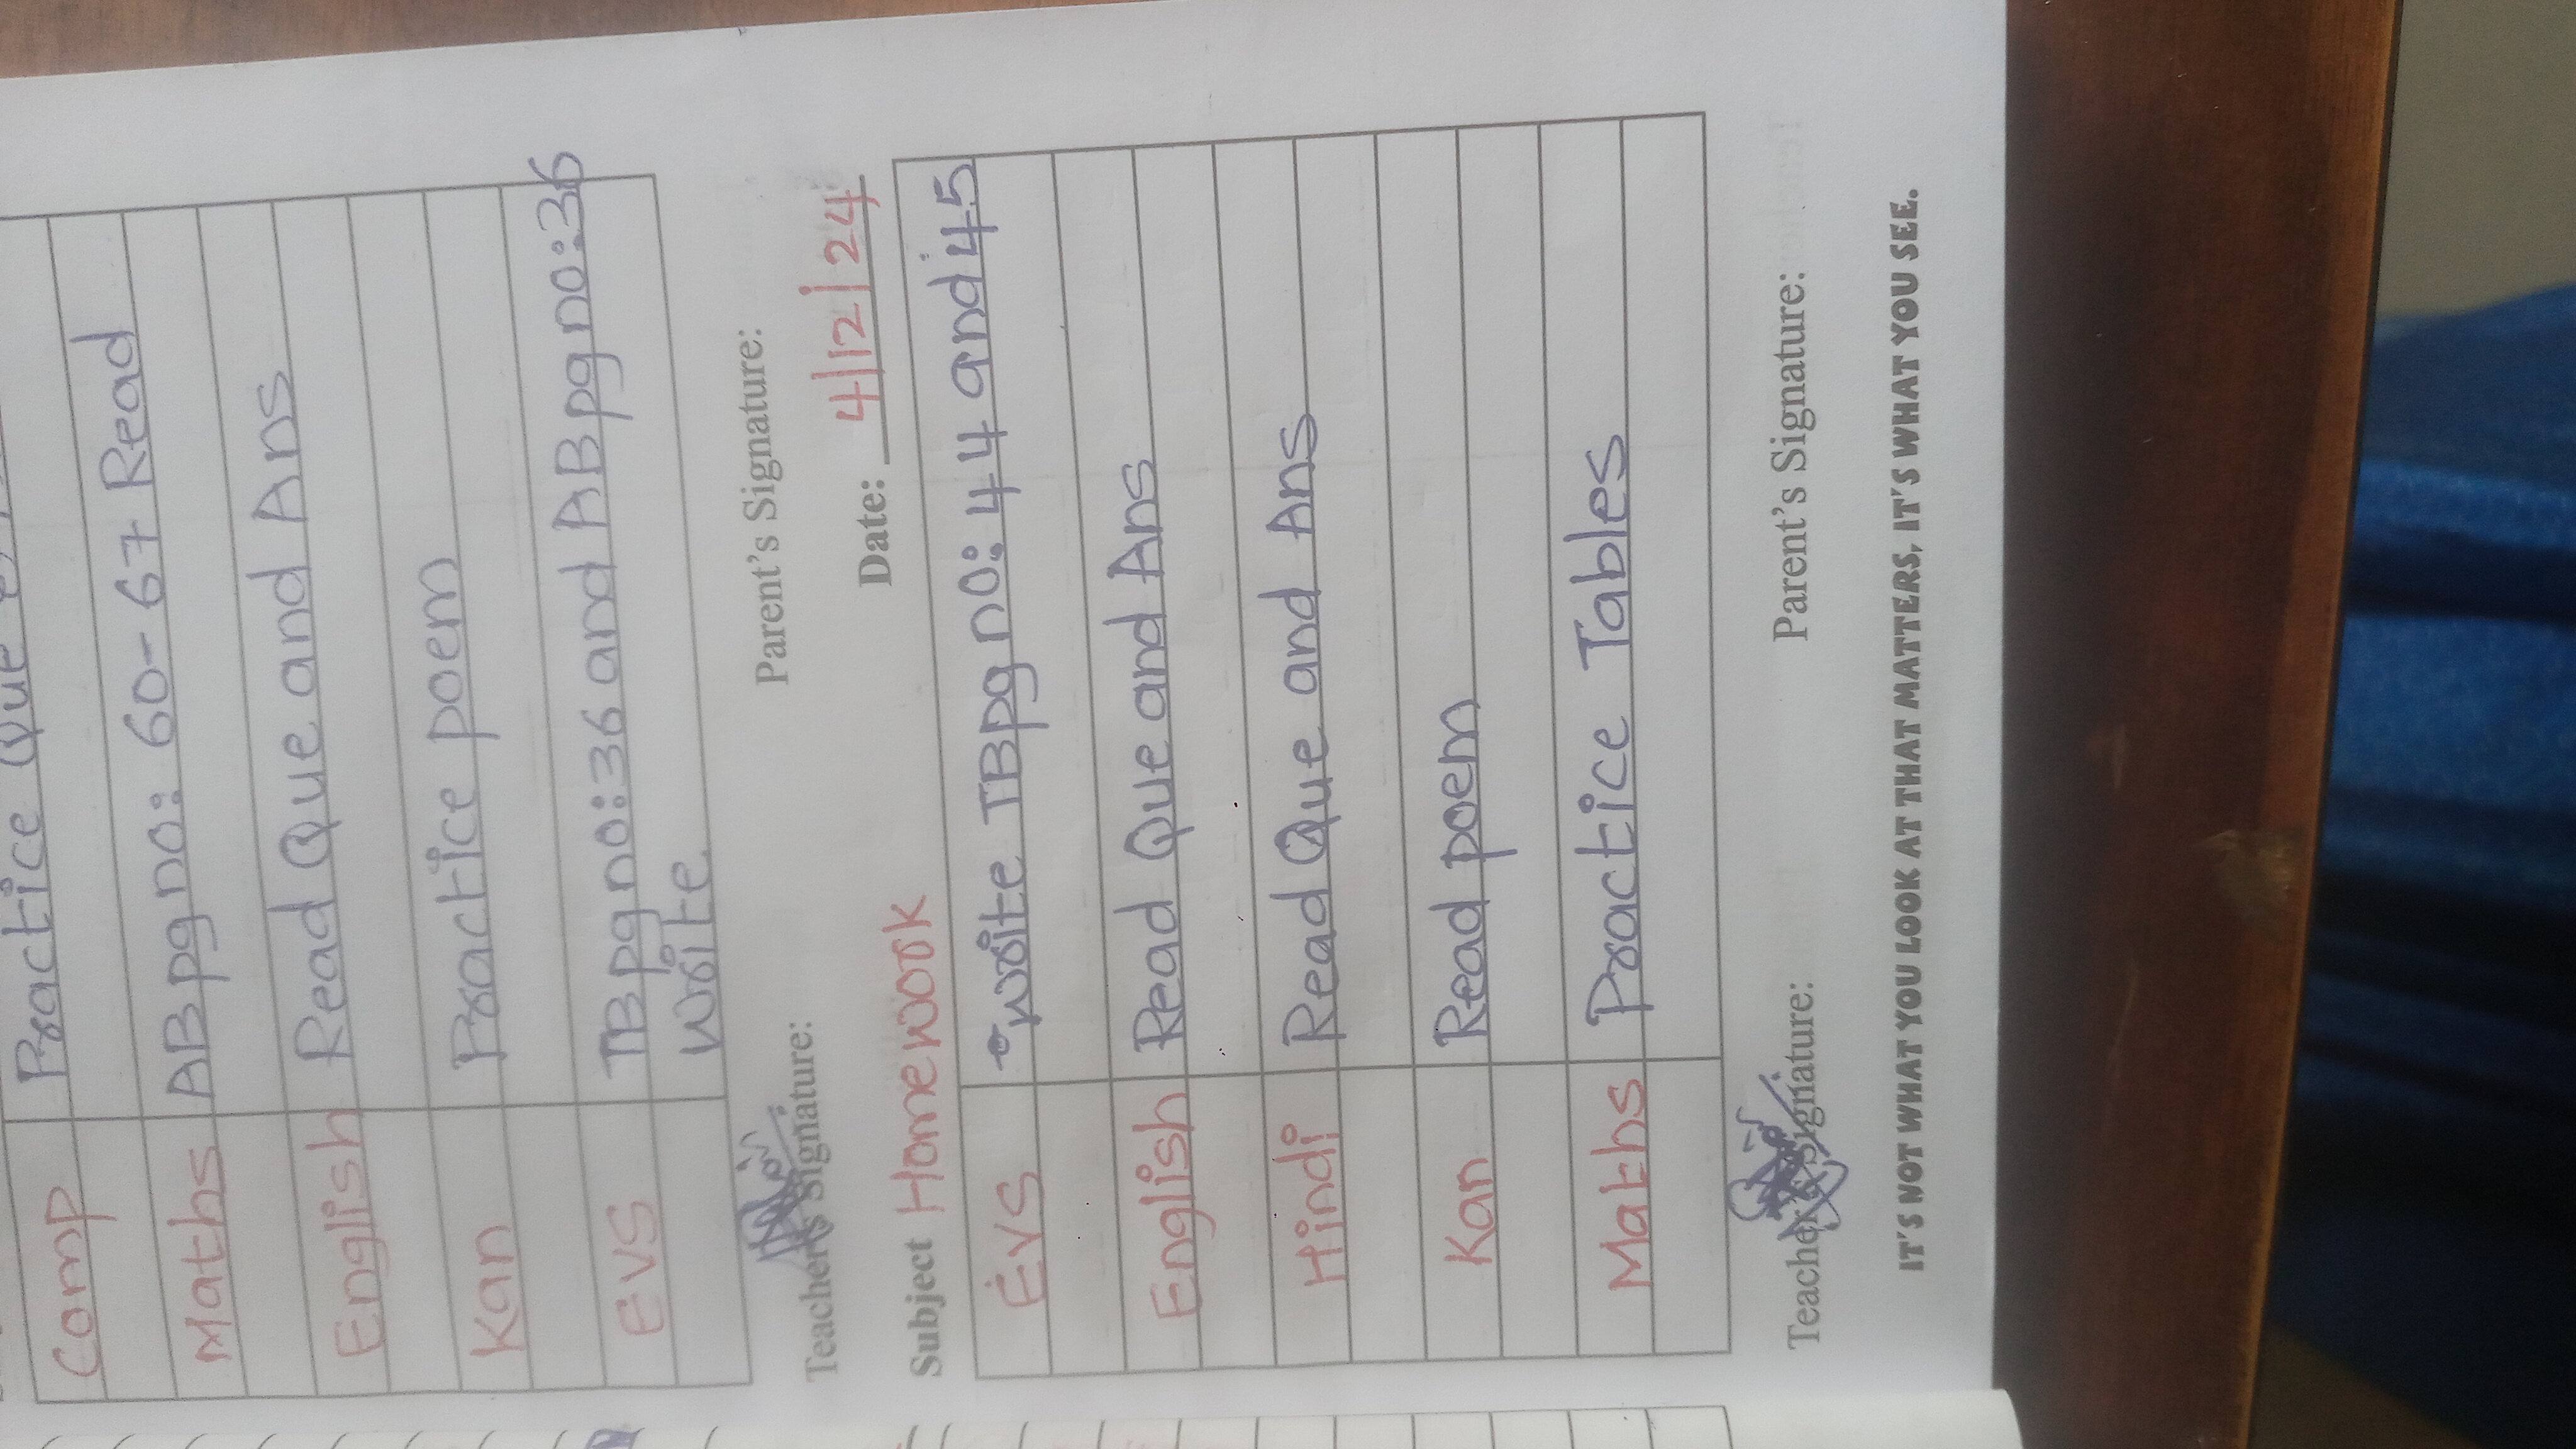 Comp Practice Que
Maths AB pg no: 60-67 Read
English Read Que and Ans
Kan Practice poem
EVS TB pg no:36 and AB pg no:36
write
Teacher's Signature: Parent's Signature:
Subject Homework Date: 4/12/24
EVS write TB pg no: 44 and 45
English Read Que and Ans
Hindi Read Que and Ans
Kan Read poem
Maths Practice Tables
Teacher's Signature: Parent's Signature:
IT'S NOT WHAT YOU LOOK AT THAT MATTERS, IT'S WHAT YOU SEE.